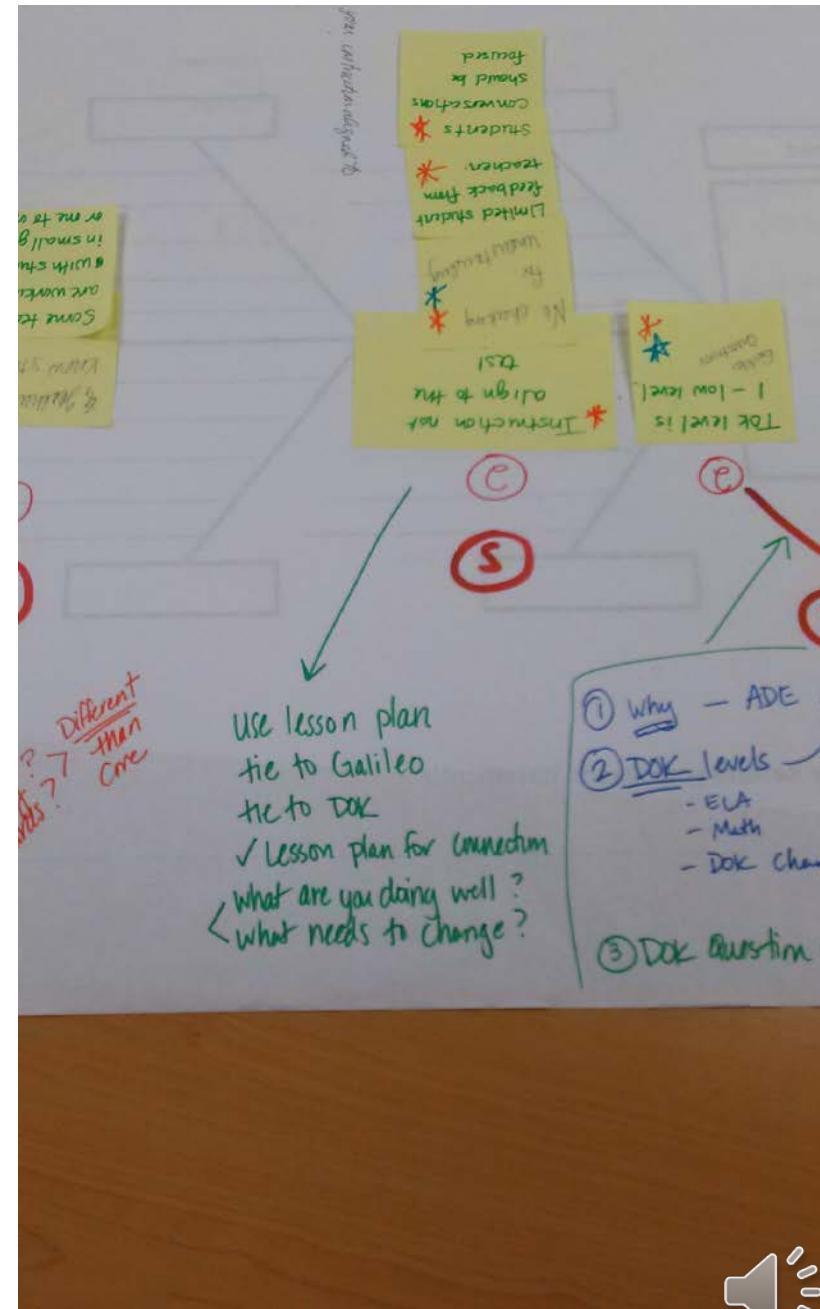 your instruction aligned to
Students
conversations
should be
focused
Limited student
feedback from
teacher.
No checking
for
understanding
Instruction not
align to the
test
TOK level is
1 - low level.
Galileo
Question
Some
are
with
in small
or one to
know
e
e
S
Different
than
Core
use lesson plan
tie to Galileo
tie to DOK
✓ Lesson plan for connection
what are you doing well?
what needs to change?
① Why — ADE
② DOK levels —
- ELA
- Math
- DOK
③ DOK Question